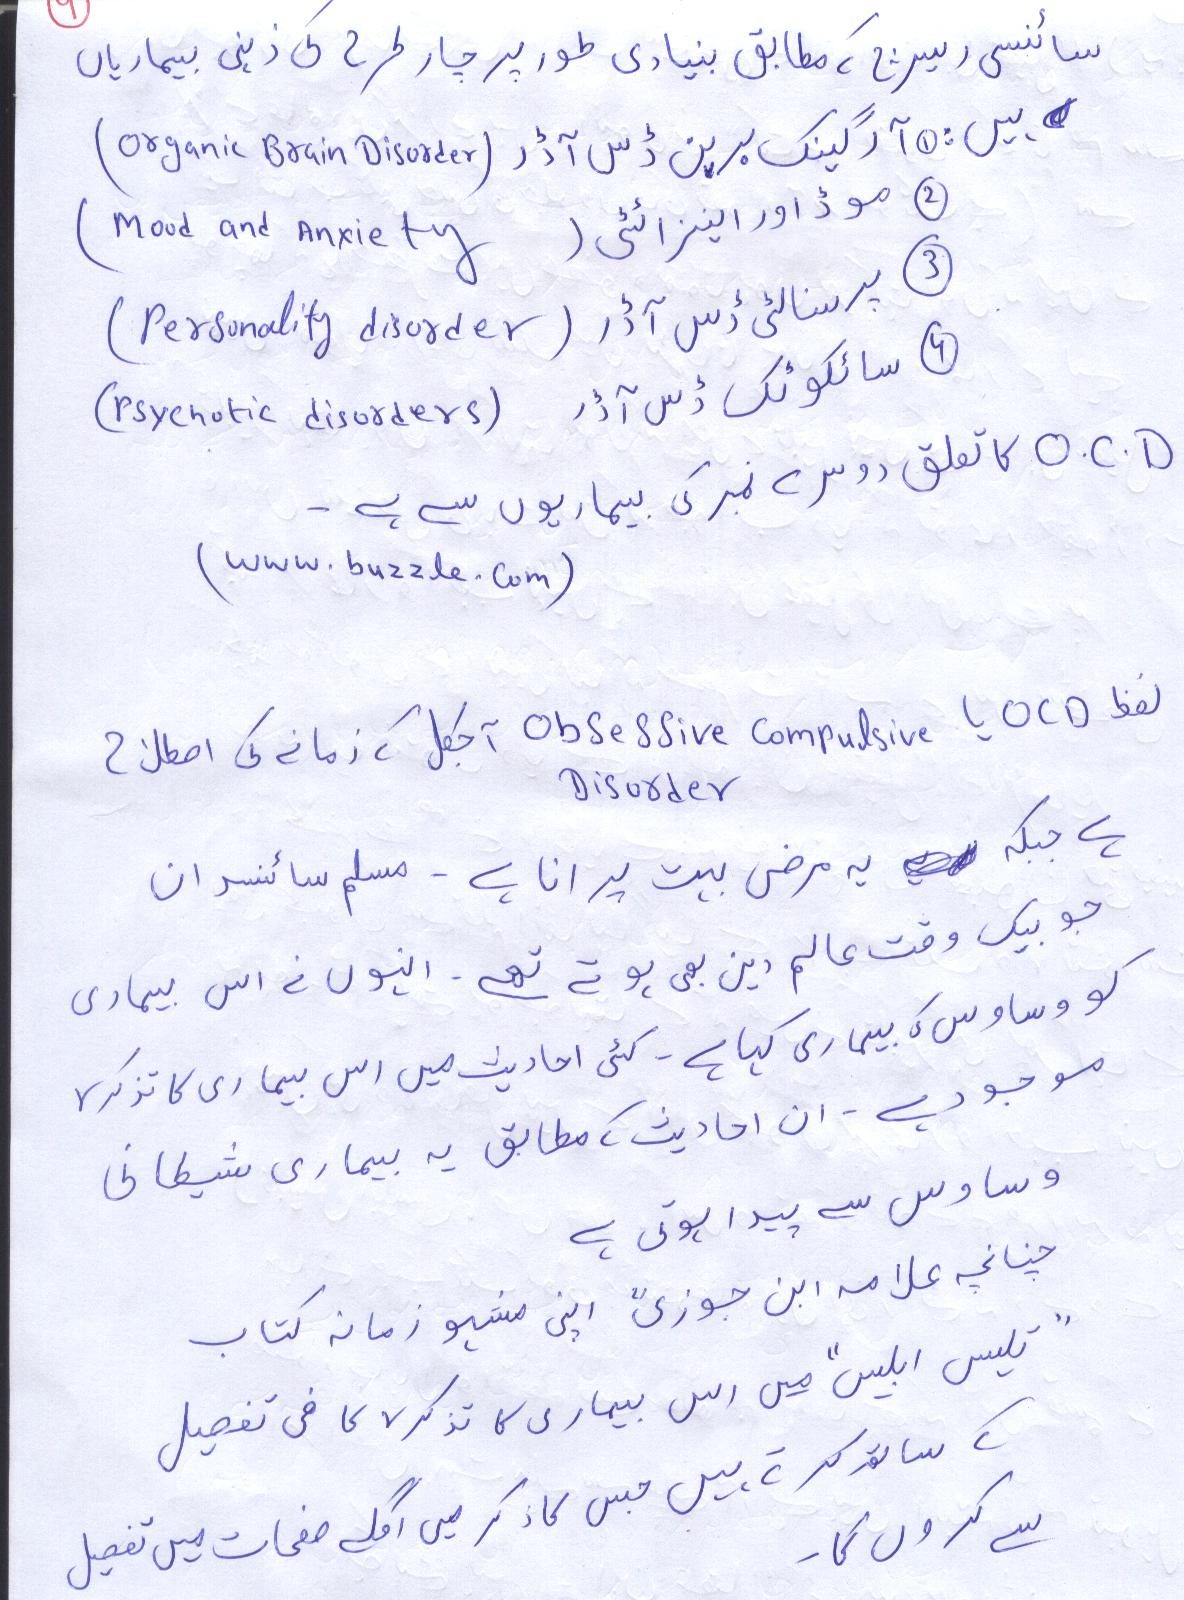 ۹
سائنسی ریسرچ کے مطابق بنیادی طور پر چار طرح کی ذہنی بیماریاں
ہیں: ① آرگینک برین ڈس آڈر (Organic Brain Disorder)
② موڈ اور اینزائٹی (Mood and Anxiety)
③ پرسنالٹی ڈس آڈر (Personality disorder)
④ سائکوٹک ڈس آڈر (Psychotic disorders)
O.C.D کا تعلق دوسرے نمبر کی بیماریوں سے ہے -
(www.buzzle.com)
لفظ OCD یا Obsessive Compulsive آجکل کے زمانے کی اصطلاح
Disorder
ہے جبکہ یہ مرض بہت پرانا ہے - مسلم سائنسدان
جو بیک وقت عالم دین بھی ہوتے تھے - انہوں نے اس بیماری
کو وساوس کی بیماری کہا ہے - کئی احادیث میں اس بیماری کا تذکرہ
موجود ہے - ان احادیث کے مطابق یہ بیماری شیطانی
وساوس سے پیدا ہوتی ہے
چنانچہ علامہ ابن جوزیؒ اپنی مشہور زمانہ کتاب
"تلبیس ابلیس" میں اس بیماری کا تذکرہ کافی تفصیل
کے ساتھ کرتے ہیں جس کا ذکر میں اگلے صفحات میں تفصیل
سے کروں گا -